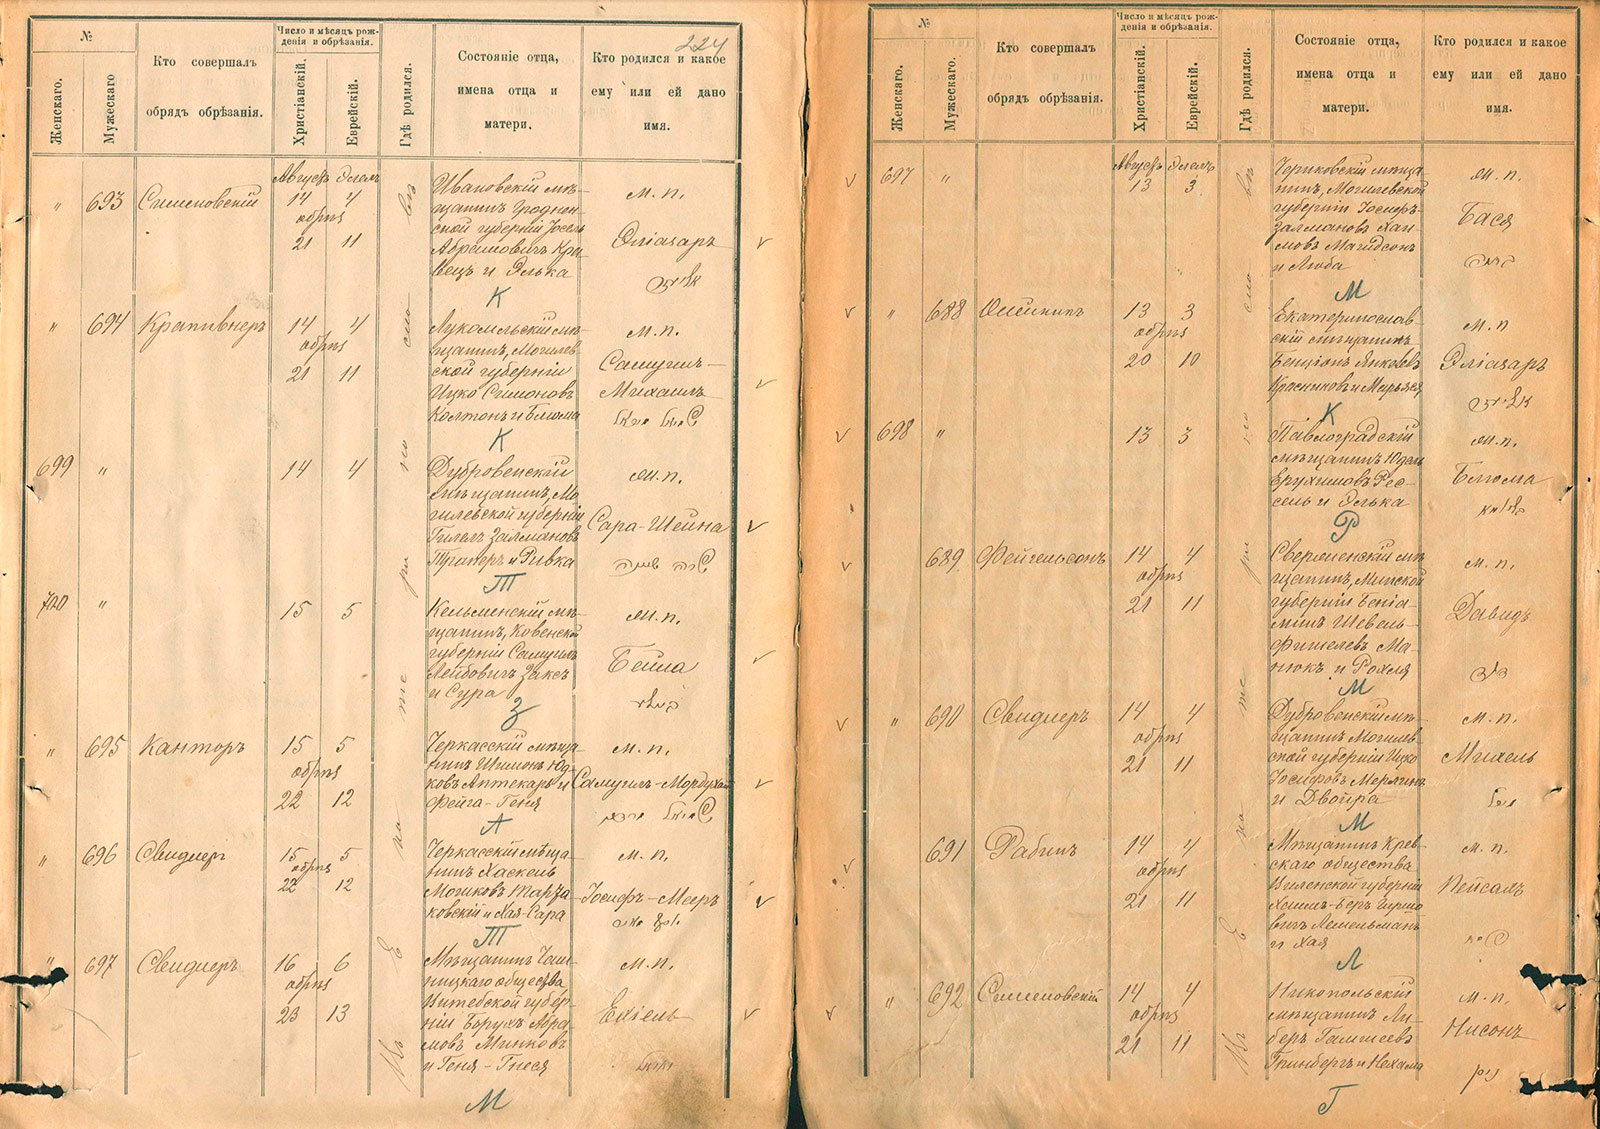 224
№
Женскаго.
Мужескаго
Кто совершалъ
обрядъ обрѣзанія.
Число и мѣсяцъ рож-
денія и обрѣзанія.
Христіанскій.
Еврейскій.
Гдѣ родился.
Состояніе отца,
имена отца и
матери.
Кто родился и какое
ему или ей дано
имя.
Въ Екатеринославѣ
" 693
Августъ Элелъ
14 4
обрѣз
21 11
Ивановскій мѣ-
щанинъ Гроднен-
ской губерніи Іосель
Абрамовичъ Кра-
вецъ и Элька
м.п.
Эліазаръ
К
" 694 Крапивнеръ
14 4
обрѣз
21 11
Лукомльскій мѣ-
щанинъ, Могилев-
ской губерніи
Ицко Симоновъ
Колтонъ и Блюма
м.п.
Самуилъ-
Михаилъ
שמואל מיכאל
К
699 "
14 4
Дубровенскій
мѣщанинъ, Мо-
гилевской губерніи
Гилелъ Залмановъ
и Ривка
м.п.
Сара-Шейна
שרה שיינה
Т
700 "
15 5
Кельменскій мѣ-
щанинъ, Ковенской
губерніи Самуилъ
Лейбовичъ Заксъ
и Сура
м.п.
Бейла
ביילא
З
" 695 Канторъ
15 5
обрѣз
22 12
Черкасскій мѣща-
нинъ Шимонъ Юд-
ковъ Аптекарь и
Фейга-Геня
м.п.
Самуилъ-Мордухай
שמואל מרדכי
А
" 696 Свидлеръ
15 5
обрѣз
22 12
Черкасскій мѣща-
нинъ Хаскель
ковскій и Хая-Сара
м.п.
Іосифъ-Мееръ
יוסף מאיר
Т
" 697 Свидлеръ
16 6
обрѣз
23 13
Мѣщанинъ Чаш-
ницкаго общества
Витебской губер-
ніи Борухъ Абра-
мовъ Минковъ
и Геня-Гнеся
м.п.
Ехіель
יחיאל
М
№
Женскаго.
Мужескаго.
Кто совершалъ
обрядъ обрѣзанія.
Число и мѣсяцъ рож-
денія и обрѣзанія.
Христіанскій.
Еврейскій.
Гдѣ родился.
Состояніе отца,
имена отца и
матери.
Кто родился и какое
ему или ей дано
имя.
Въ Екатеринославѣ
697 "
Августъ Элелъ
13 3
Чериковскій мѣща-
нинъ, Могилевской
губерніи Іосифъ-
Залмановъ Хаи-
мовъ Магидсонъ
и Люба
м.п.
Бася
М
" 688
13 3
обрѣз
20 10
Екатеринослав-
скій мѣщанинъ
Бенціонъ Янкелевъ
Красниковъ и
м.п
Эліазаръ
К
698 "
13 3
Павлоградскій
мѣщанинъ Юдель
Ерухимовъ Рес-
сель и Элька
м.п.
Блюма
בלומא
Р
689 Фейгельсонъ
14 4
обрѣз
21 11
мѣ-
щанинъ, Минской
губерніи Беніа-
минъ Шевель-
Фишелевъ Ма-
нюкъ и Рохля
м.п.
Давидъ
דוד
М
" 690 Свидлеръ
14 4
обрѣз
21 11
Дубровенскій мѣ-
щанинъ Могилев-
ской губерніи Ицко
Іосифовъ Мерлинъ
и Двойра
м.п.
Михель
מיכל
М
691 Рабинъ
14 4
обрѣз
21 11
Мѣщанинъ Крев-
скаго общества
Виленской губерніи
Гиршо-
вичъ
и Хая
м.п.
Л
" 692
14 4
обрѣз
21 11
Никопольскій
мѣщанинъ Ли-
беръ
Гринбергъ и Нехама
м.п.
Нисонъ
ניסן
Г